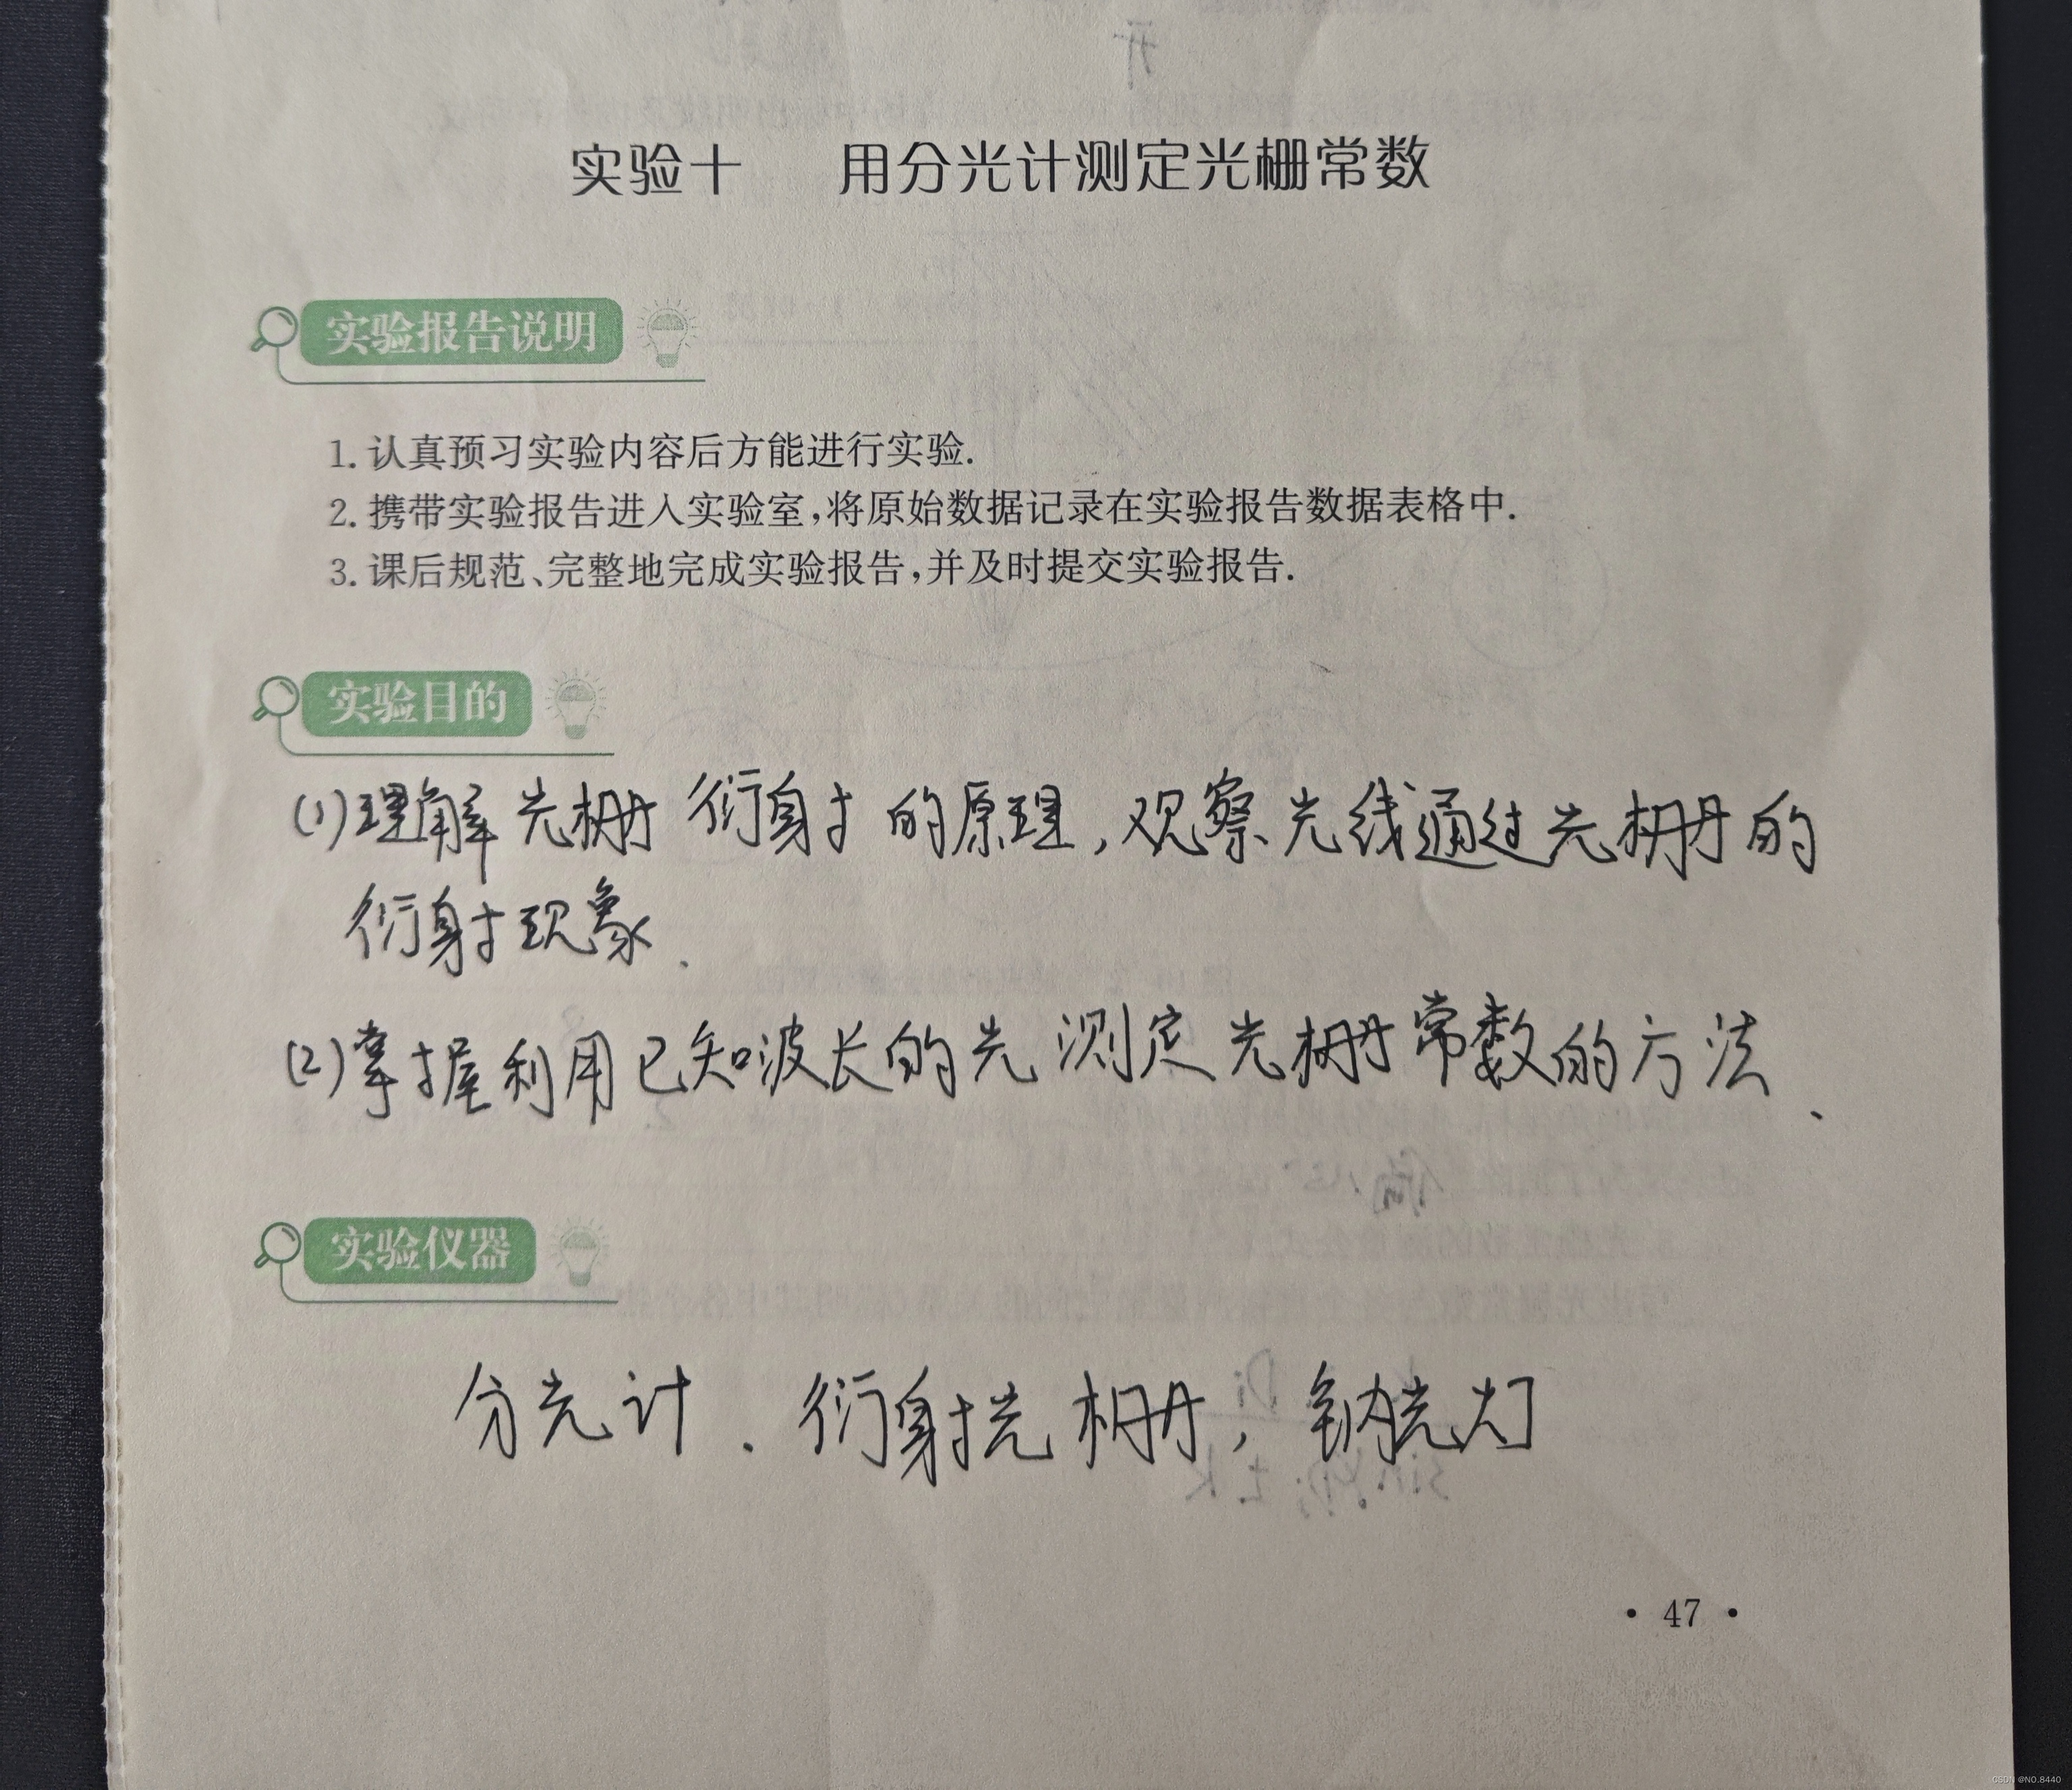 实验十 用分光计测定光栅常数
实验报告说明
1. 认真预习实验内容后方能进行实验.
2. 携带实验报告进入实验室,将原始数据记录在实验报告数据表格中.
3. 课后规范、完整地完成实验报告,并及时提交实验报告.
实验目的
(1)理解光栅衍射的原理,观察光线通过光栅的
衍射现象.
(2)掌握利用已知波长的光测定光栅常数的方法.
实验仪器
分光计、衍射光栅,钠光灯
· 47 ·
CSDN @NO.8440